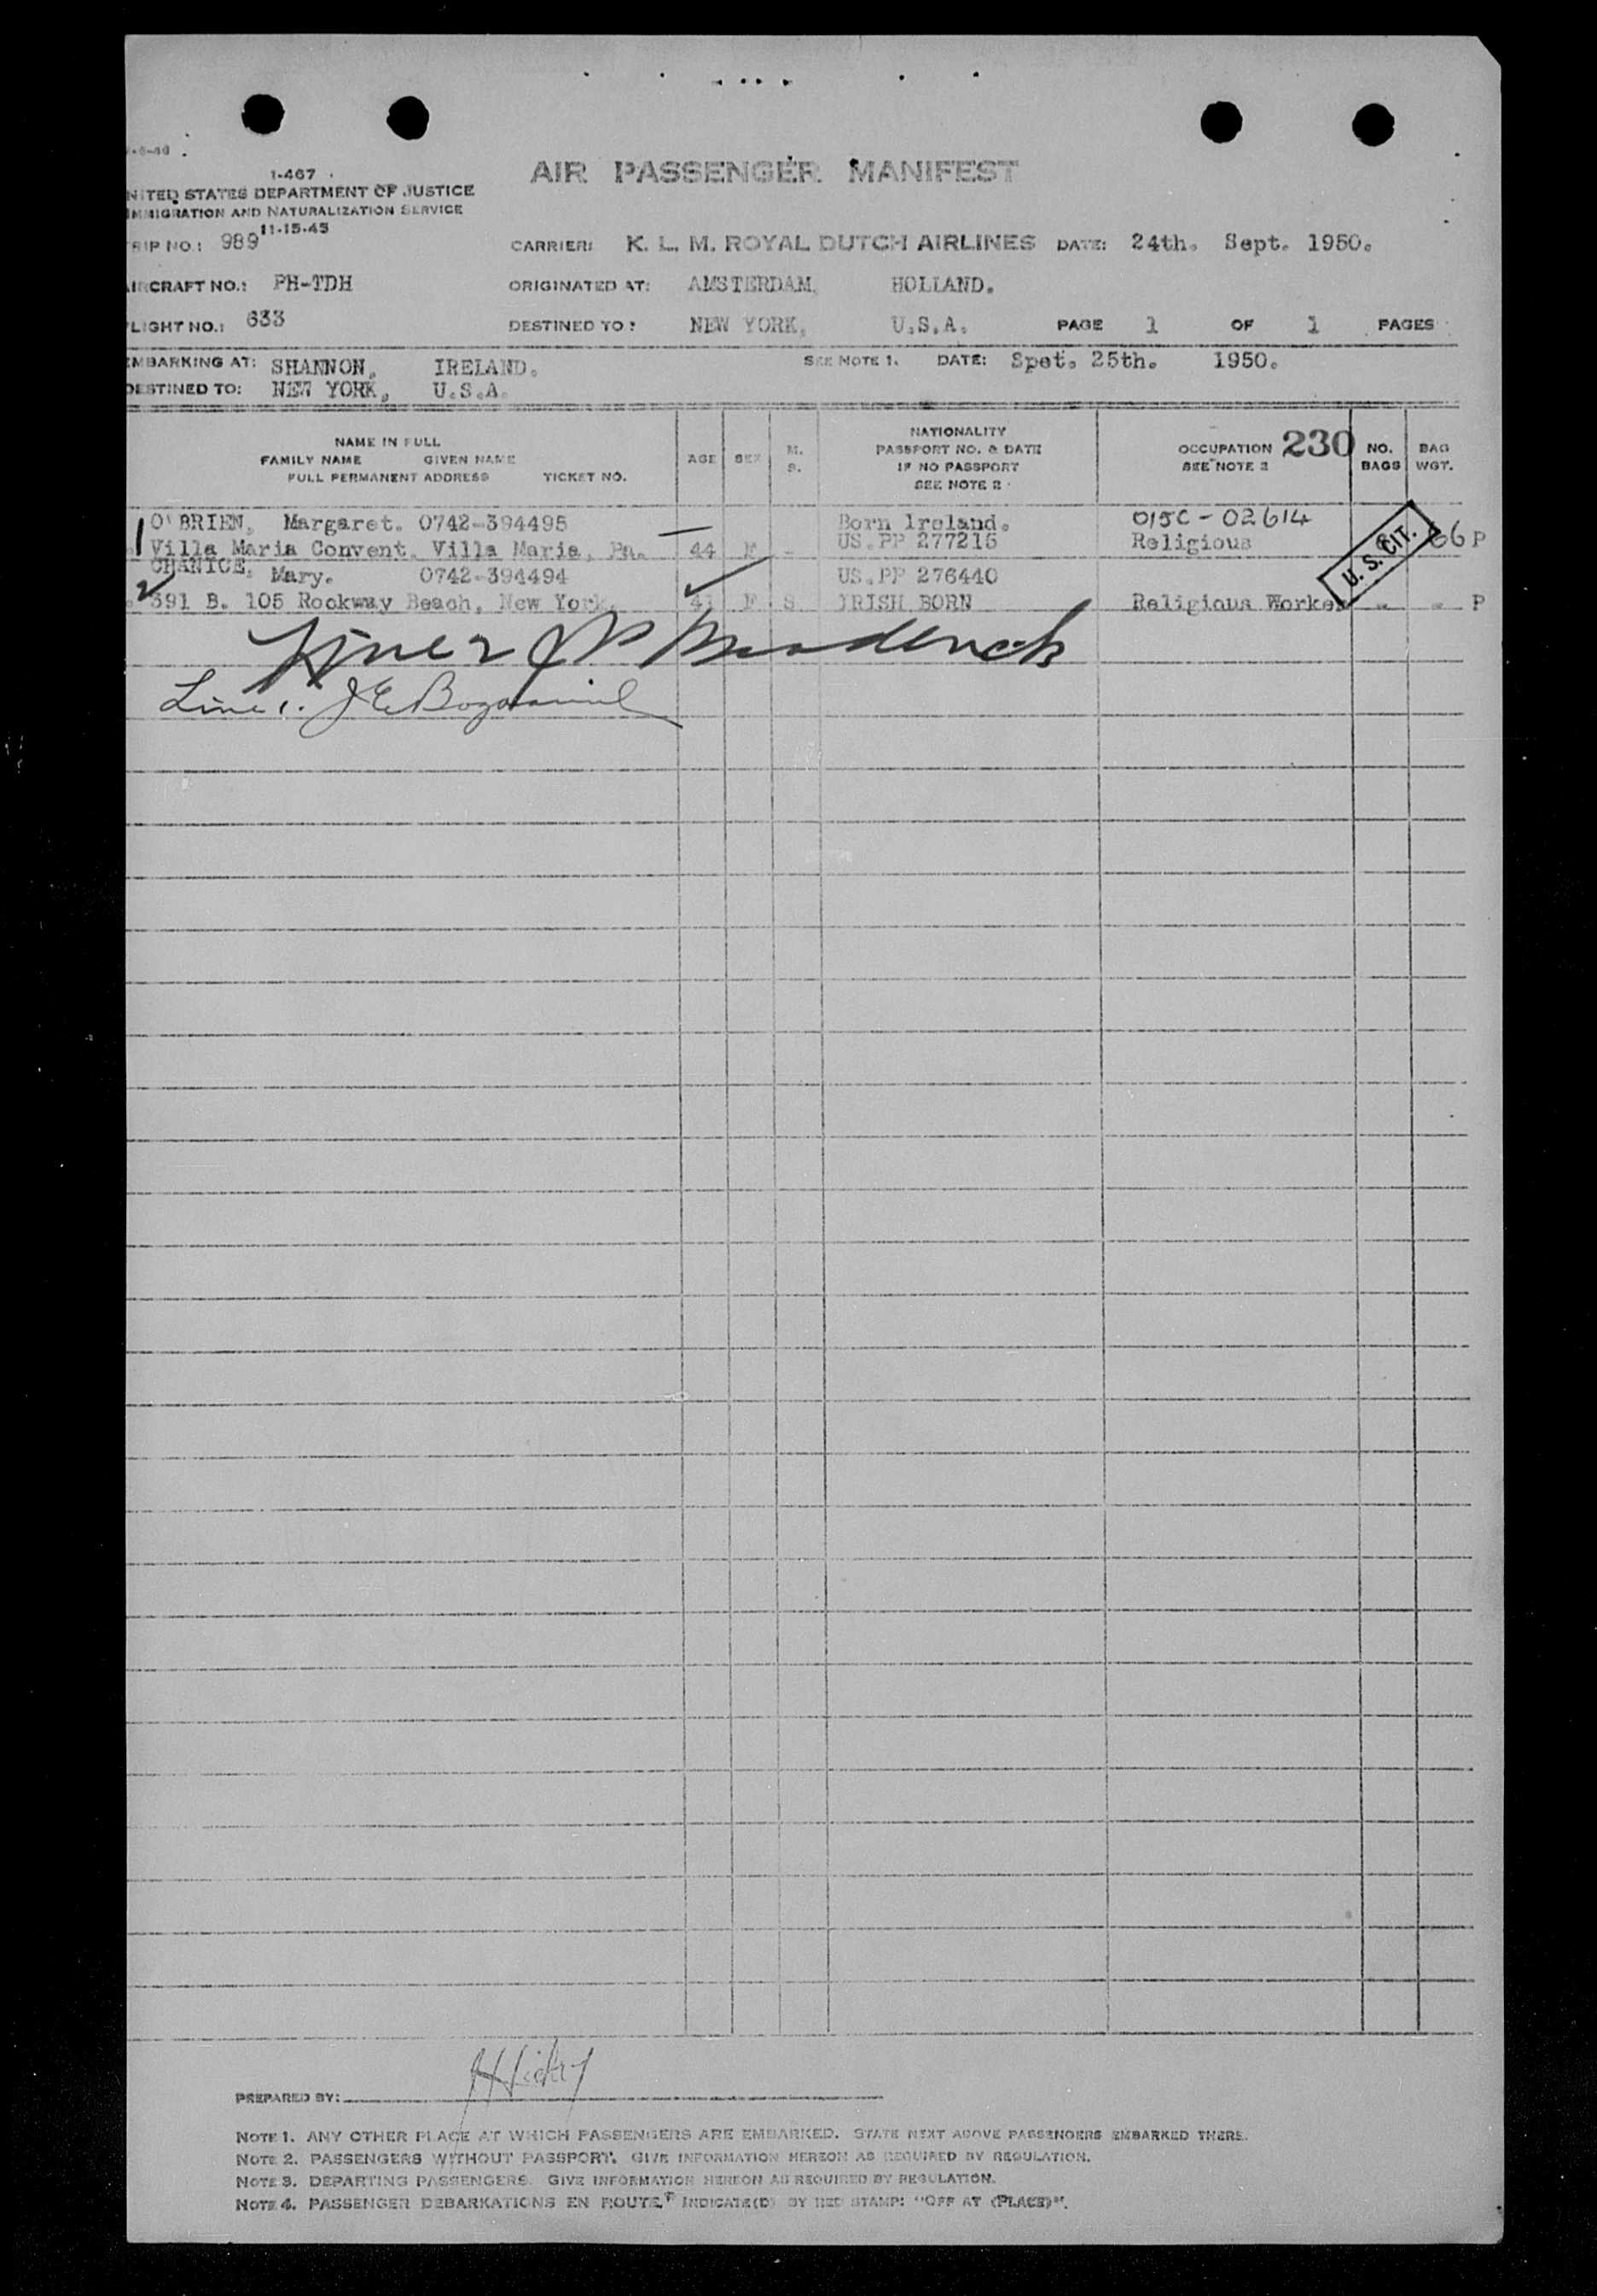 1-467
NITED STATES DEPARTMENT OF JUSTICE
MMIGRATION AND NATURALIZATION SERVICE
11-15-45
AIR PASSENGER MANIFEST
RIP NO.: 989 CARRIER: K. L. M. ROYAL DUTCH AIRLINES DATE: 24th. Sept. 1950.
IRCRAFT NO.: PH-TDH ORIGINATED AT: AMSTERDAM, HOLLAND.
LIGHT NO.: 633 DESTINED TO: NEW YORK, U.S.A. PAGE 1 OF 1 PAGES
EMBARKING AT: SHANNON, IRELAND. SEE NOTE 1. DATE: Spet. 25th. 1950.
DESTINED TO: NEW YORK, U.S.A.
NAME IN FULL
FAMILY NAME GIVEN NAME
FULL PERMANENT ADDRESS TICKET NO.
AGE SEX M. S.
NATIONALITY
PASSPORT NO. & DATE
IF NO PASSPORT
SEE NOTE 2
OCCUPATION 230
SEE NOTE 2
NO. BAGS
BAG WGT.
O'BRIEN, Margaret. 0742-394495 Born Ireland. 015C-02614
Villa Maria Convent, Villa Maria, Pa. 44 F - US.PP 277215 Religious 66 P
U. S. CIT.
Mary. 0742-394494 US.PP 276440
391 B. 105 Rookway Beach, New York. 41 F S IRISH BORN Religious Worker - - P
Line 2 JP
Line 1. JE
PREPARED BY: JHickey
NOTE 1. ANY OTHER PLACE AT WHICH PASSENGERS ARE EMBARKED. STATE NEXT ABOVE PASSENGERS EMBARKED THERE.
NOTE 2. PASSENGERS WITHOUT PASSPORT. GIVE INFORMATION HEREON AS REQUIRED BY REGULATION.
NOTE 3. DEPARTING PASSENGERS. GIVE INFORMATION HEREON AS REQUIRED BY REGULATION.
NOTE 4. PASSENGER DEBARKATIONS EN ROUTE. INDICATE(D) BY RED STAMP: "OFF AT (PLACE)".